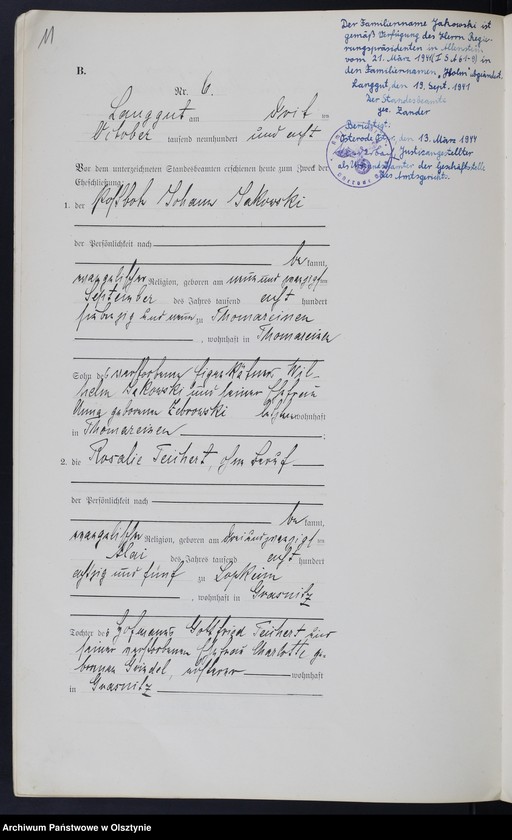 11
Der Familienname Jakowski ist
gemäß Verfügung des Herrn Regie-
rungspräsidenten in Allenstein
vom 21. März 1941
in den Familiennamen „Holm" abgeändert.
Langgut, den 19. Sept. 1941
Der Standesbeamte
gez. Zander
Berichtigt
Osterode Ostpr, den 13. März 1944
Justizangestellter
als Urkundsbeamter der Geschäftsstelle
des Amtsgerichts.
B.
Nr. 6.
Langgut am drit ten
October tausend neunhundert und acht
Vor dem unterzeichneten Standesbeamten erschienen heute zum Zweck der
Eheschließung:
1. der Postbote Johann Jakowski
der Persönlichkeit nach
be kannt,
evangelischer Religion, geboren am neunundzwanzigsten
September des Jahres tausend acht hundert
siebenzig und neun zu Thomareinen
, wohnhaft in Thomareinen
Sohn des verstorbenen Eigenkätner Wil-
helm Jakowski und seiner Ehefrau
Anna geborene Zebrowski wohnhaft
in Thomareinen ;
2. die Rosalie Teichert, ohne Beruf
der Persönlichkeit nach
be kannt,
evangelischer Religion, geboren am dreiundzwanzigsten
Mai des Jahres tausend acht hundert
achtzig und fünf zu Lopkeim
, wohnhaft in Grasnitz
Tochter des Hofmanns Gottfried Teichert und
seiner verstorbenen Ehefrau Charlotte ge-
borenen ersterer wohnhaft
in Grasnitz
Archiwum Państwowe w Olsztynie